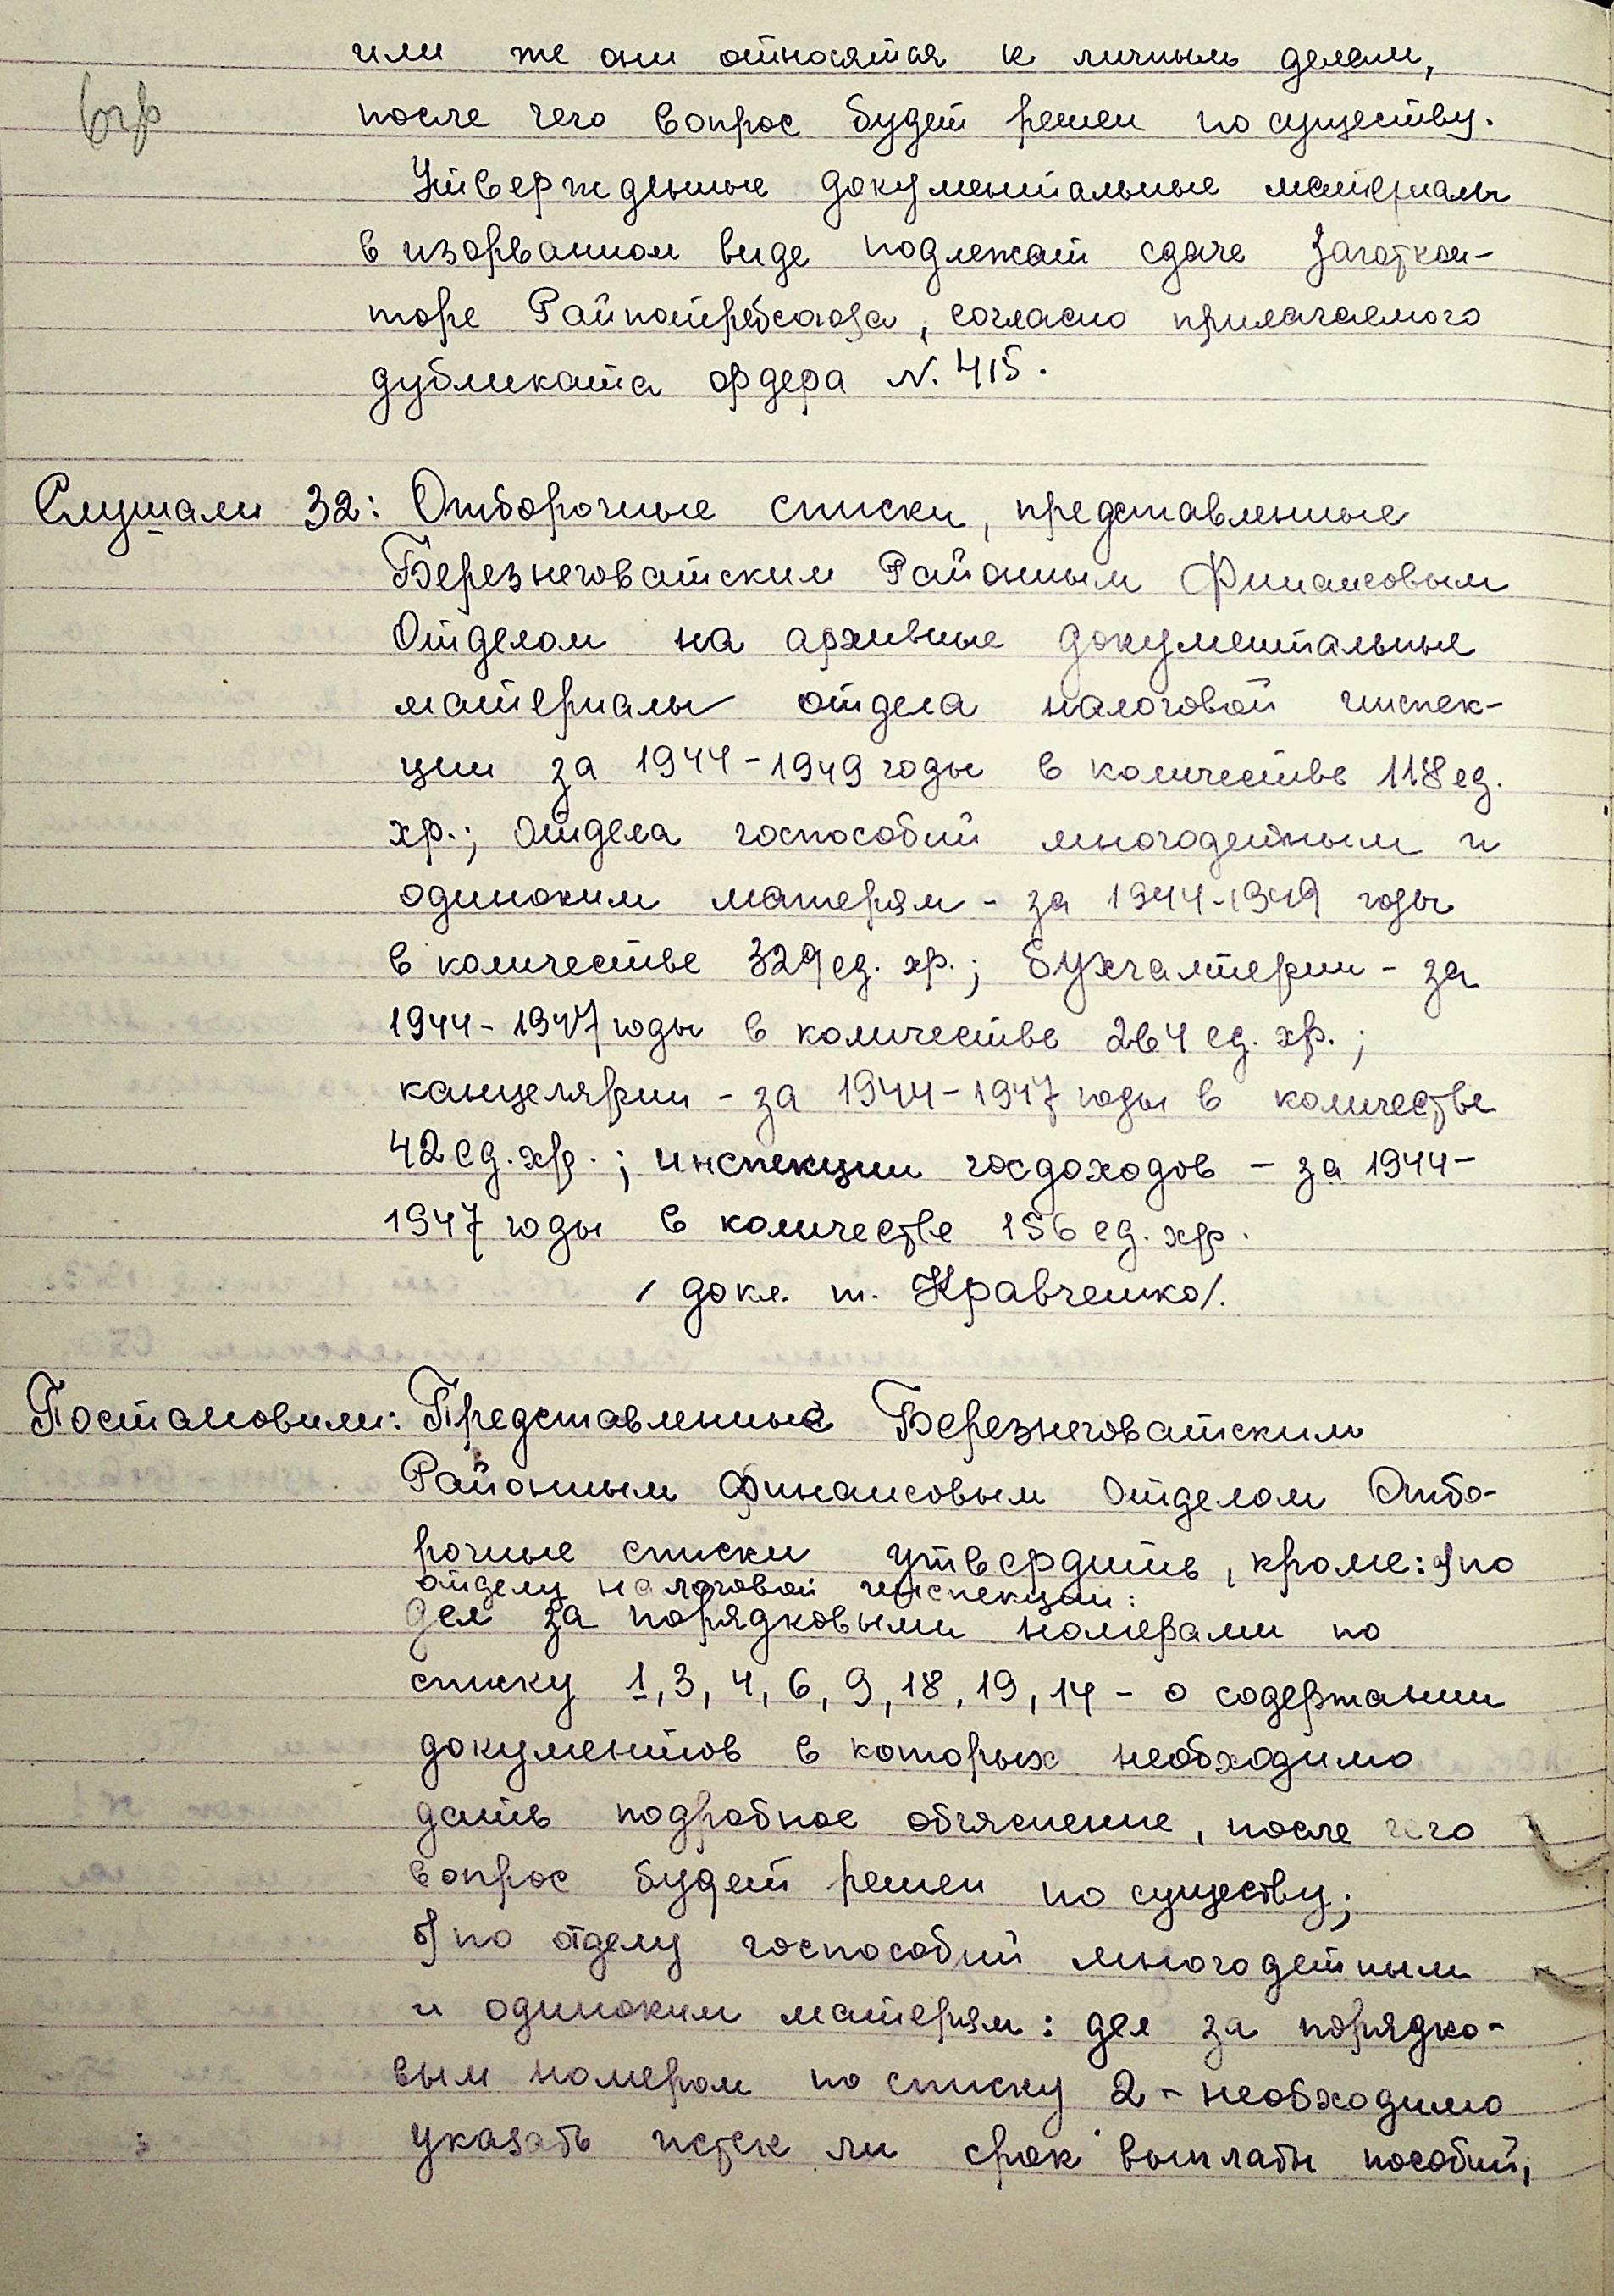 или же они относятся к личным делам,
после чего вопрос будет решен по существу.
Утвержденные документальные материалы
в изорванном виде подлежат сдаче Заготкон-
торе Райпотребсоюза, согласно прилагаемого
дубликата ордера N. 415.
Слушали 32: Отборочные списки, представленные
Березнеговатским Районным Финансовым
Отделом на архивные документальные
материалы отдела налоговой инспек-
ции за 1944-1949 годы в количестве 118 ед.
хр.; отдела госпособий многодетным и
одиноким матерям - за 1944-1949 годы
в количестве 329 ед. хр.; бухгалтерии - за
1944-1947 годы в количестве 264 ед. хр.;
канцелярии - за 1944-1947 годы в количестве
42 ед. хр.; инспекции госдоходов - за 1944-
1947 годы в количестве 156 ед. хр.
/ докл. т. Кравченко/.
Постановили: Представленные Березнеговатским
Районным Финансовым Отделом Отбо-
рочные списки утвердить, кроме: а) по
отделу налоговой инспекции:
дел за порядковыми номерами по
списку 1, 3, 4, 6, 9, 18, 19, 14 - о содержании
документов в которых необходимо
дать подробное объяснение, после чего
вопрос будет решен по существу;
б) по отделу госпособий многодетным
и одиноким матерям: дел за порядко-
вым номером по списку 2 - необходимо
указать истек ли срок выплаты пособий,